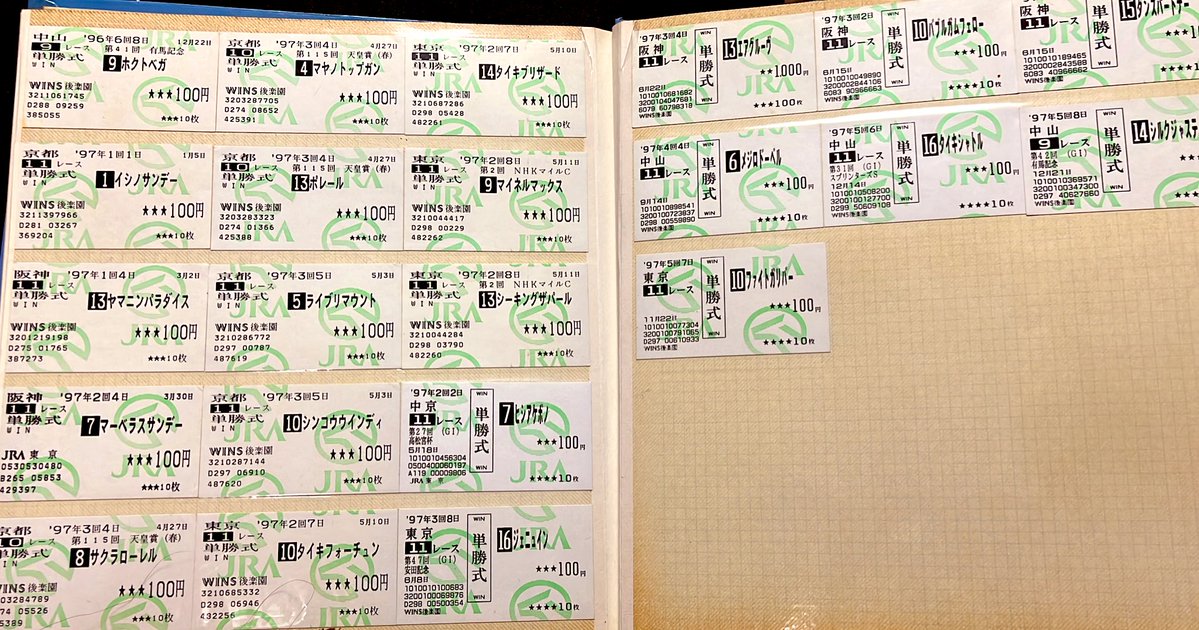 中山 '96年6回8日 12月22日
9 レース 第41回 有馬記念
単勝式 WIN 9 ホクトベガ
WINS後楽園 ★★★100円
3211061745
D288 09259
385055 ★★★10枚
京都 '97年3回4日 4月27日
10 レース 第115回 天皇賞(春)
単勝式 WIN 4 マヤノトップガン
WINS後楽園 ★★★100円
3203287705
D274 08652
425391 ★★★10枚
東京 '97年2回7日 5月10日
11 レース
単勝式 WIN 14 タイキブリザード
WINS後楽園 ★★★100円
3210687286
D298 05428
482261 ★★★10枚
京都 '97年1回1日 1月5日
11 レース
単勝式 WIN 1 イシノサンデー
WINS後楽園 ★★★100円
3211397966
D281 03267
369204 ★★★10枚
京都 '97年3回4日 4月27日
10 レース 第115回 天皇賞(春)
単勝式 WIN 13 ポレール
WINS後楽園 ★★★100円
3203283323
D274 01366
425388 ★★★10枚
東京 '97年2回8日 5月11日
11 レース 第2回 NHKマイルC
単勝式 WIN 9 マイネルマックス
WINS後楽園 ★★★100円
3210044417
D298 00229
482262 ★★★10枚
阪神 '97年1回4日 3月2日
11 レース
単勝式 WIN 13 ヤマニンパラダイス
WINS後楽園 ★★★100円
3201219198
D275 01765
387273 ★★★10枚
京都 '97年3回5日 5月3日
11 レース
単勝式 WIN 5 ライブリマウント
WINS後楽園 ★★★100円
3210286772
D297 00787
487619 ★★★10枚
東京 '97年2回8日 5月11日
11 レース 第2回 NHKマイルC
単勝式 WIN 13 シーキングザパール
WINS後楽園 ★★★100円
3210044284
D298 03790
482260 ★★★10枚
阪神 '97年2回4日 3月30日
11 レース
単勝式 WIN 7 マーベラスサンデー
JRA 東京 ★★★100円
0530530480
B265 05853
429397 ★★★10枚
京都 '97年3回5日 5月3日
11 レース
単勝式 WIN 10 シンコウウインディ
WINS後楽園 ★★★100円
3210287144
D297 06910
487620 ★★★10枚
'97年2回2日
中京 WIN 7 ヒシアケボノ
11 レース 単勝式
第27回 (GI)
高松宮杯 ★★★100円
5月18日
1010010456304
0500400060197
A119 00009806 WIN
JRA 東京 ★★★★10枚
京都 '97年3回4日 4月27日
10 レース 第115回 天皇賞(春)
単勝式 WIN 8 サクラローレル
WINS後楽園 ★★★100円
03284789
274 05526
5389 ★★★10枚
東京 '97年2回7日 5月10日
11 レース
単勝式 WIN 10 タイキフォーチュン
WINS後楽園 ★★★100円
3210685332
D298 06946
432256 ★★★10枚
'97年3回8日
東京 WIN 16 ジェニュイン
11 レース 単勝式
第47回 (GI)
安田記念 ★★★100円
6月8日
1010010100683
3200100069876
D298 00500354 WIN
WINS後楽園 ★★★★10枚
'97年3回4日
阪神 WIN 13 エアグルーヴ
11 レース 単勝式
★★1,000円
6月22日
1010010681682
3200104047681
6079 60798318 WIN
WINS後楽園 ★★★★100枚
'97年3回2日
阪神 10 バブルガムフェロー
11 レース 単勝式
★★★100円
6月15日
1010010049890
3200002844106
6083 90966663
WINS後楽園 ★★★★10枚
阪神 15 ダンスパートナー
11 レース 単勝式
6月15日
1010010189465
3200002843588
6083 40966662 WIN
WINS後楽園
'97年4回4日
中山 WIN 6 メジロドーベル
11 レース 単勝式
★★★100円
9月14日
1010010898541
3200100723837
D298 00559890 WIN
WINS後楽園 ★★★★10枚
'97年5回6日
中山 WIN 16 タイキシャトル
11 レース 単勝式
第31回 (GI)
スプリンターズS ★★★100円
12月14日
1010010508200
3200100127700
D299 50609108 WIN
WINS後楽園 ★★★★10枚
'97年5回8日
中山 WIN 14 シルクジャステ
9 レース 単勝式
第42回 (GI)
有馬記念
12月21日
1010010369571
3200100347300
D297 40627660 WIN
WINS後楽園
'97年5回7日
東京 WIN 10 ファイトガリバー
11 レース 単勝式
★★★100円
11月22日
1010010077304
3200100791065
D297 00610933 WIN
WINS後楽園 ★★★★10枚